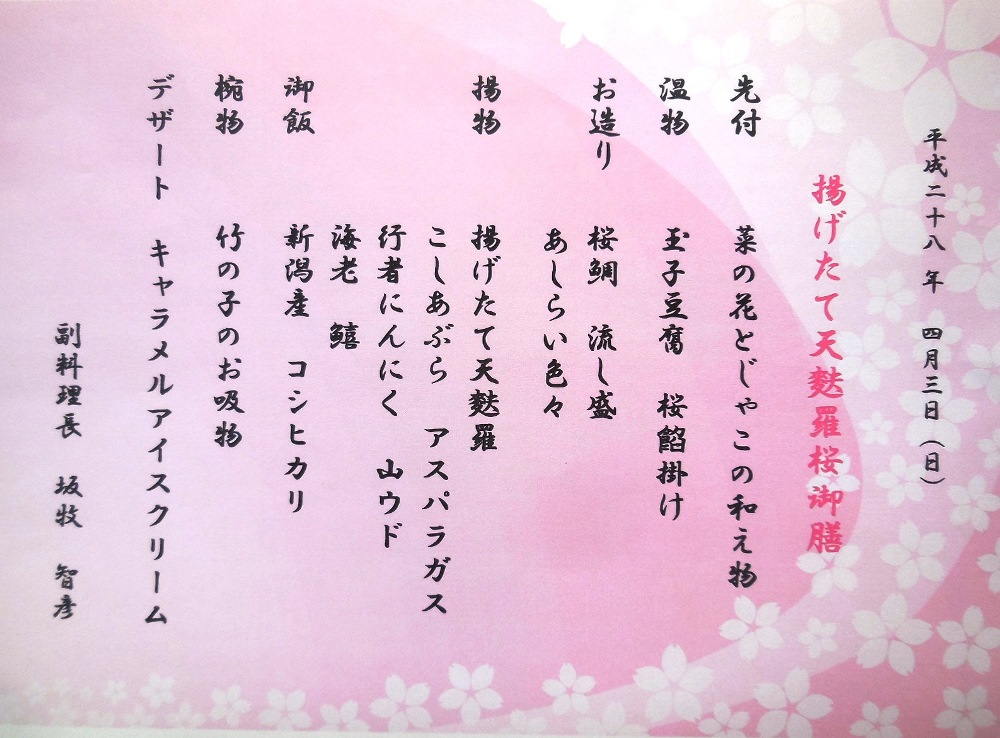 平成二十八年　四月三日（日）
揚げたて天麩羅桜御膳
先付　菜の花とじゃこの和え物
温物　玉子豆腐　桜餡掛け
お造り　桜鯛　流し盛
あしらい色々
揚物　揚げたて天麩羅
こしあぶら　アスパラガス
行者にんにく　山ウド
海老　鱚
御飯　新潟産　コシヒカリ
椀物　竹の子のお吸物
デザート　キャラメルアイスクリーム
副料理長　坂牧　智彦